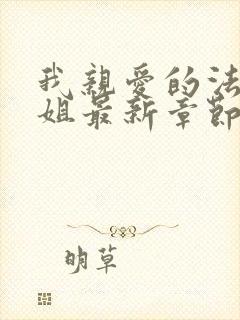 我親愛的法
姐最新章節
明草